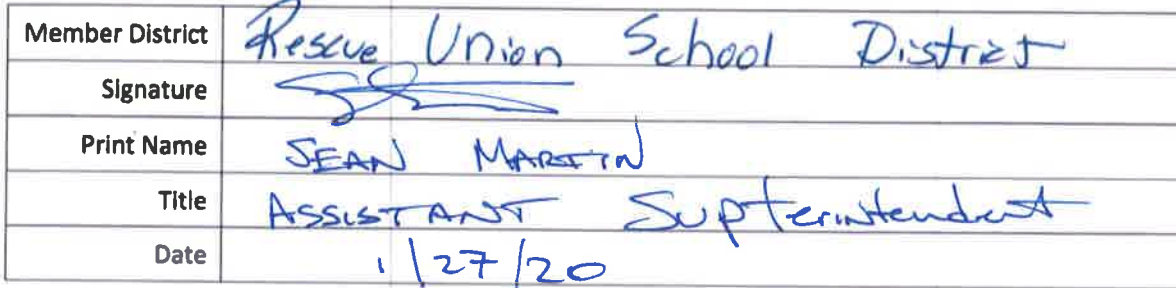 Member District Rescue Union School District
Signature
Print Name SEAN MARTIN
Title ASSISTANT Supterintendent
Date 1/27/20